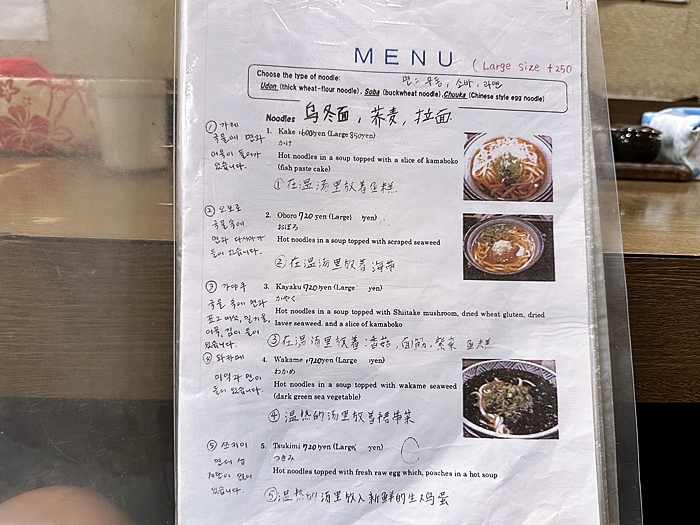 MENU
(Large size +250
Choose the type of noodle:
면: 우동, 소바, 라멘
Udon (thick wheat-flour noodle). Soba (buckwheat noodle). Chouka (Chinese style egg noodle)
Noodles 乌冬面, 荞麦, 拉面
① 가케
국물에 면과
어묵이 들어가
있습니다.
1. Kake 600yen (Large 850yen)
かけ
Hot noodles in a soup topped with a slice of kamaboko
(fish paste cake)
①在温汤里放着鱼糕
② 오보로
국물속에
면과 다시마가
들어 있습니다.
2. Oboro 720 yen (Large yen)
おぼろ
Hot noodles in a soup topped with scraped seaweed
②在温汤里放着海带
③ 가야쿠
국물 속에 면과
표고버섯, 밀기울,
어묵, 김이 들어
있습니다.
3. Kayaku 720yen (Large yen)
かやく
Hot noodles in a soup topped with Shiitake mushroom, dried wheat gluten, dried
laver seaweed. and a slice of kamaboko
③在温汤里放着:香菇, 面筋, 紫菜 鱼糕
④ 와카메
미역과 면이
들어 있습니다.
4. Wakame 720yen (Large yen)
わかめ
Hot noodles in a soup topped with wakame seaweed
(dark green sea vegetable)
④温热的汤里放着裙带菜
⑤ 쓰키미
면에 생
계란이
있습니다.
5. Tsukimi 720yen (Large yen)
つきみ
Hot noodles topped with fresh raw egg which, poaches in a hot soup
⑤温热的汤里放入新鲜的生鸡蛋